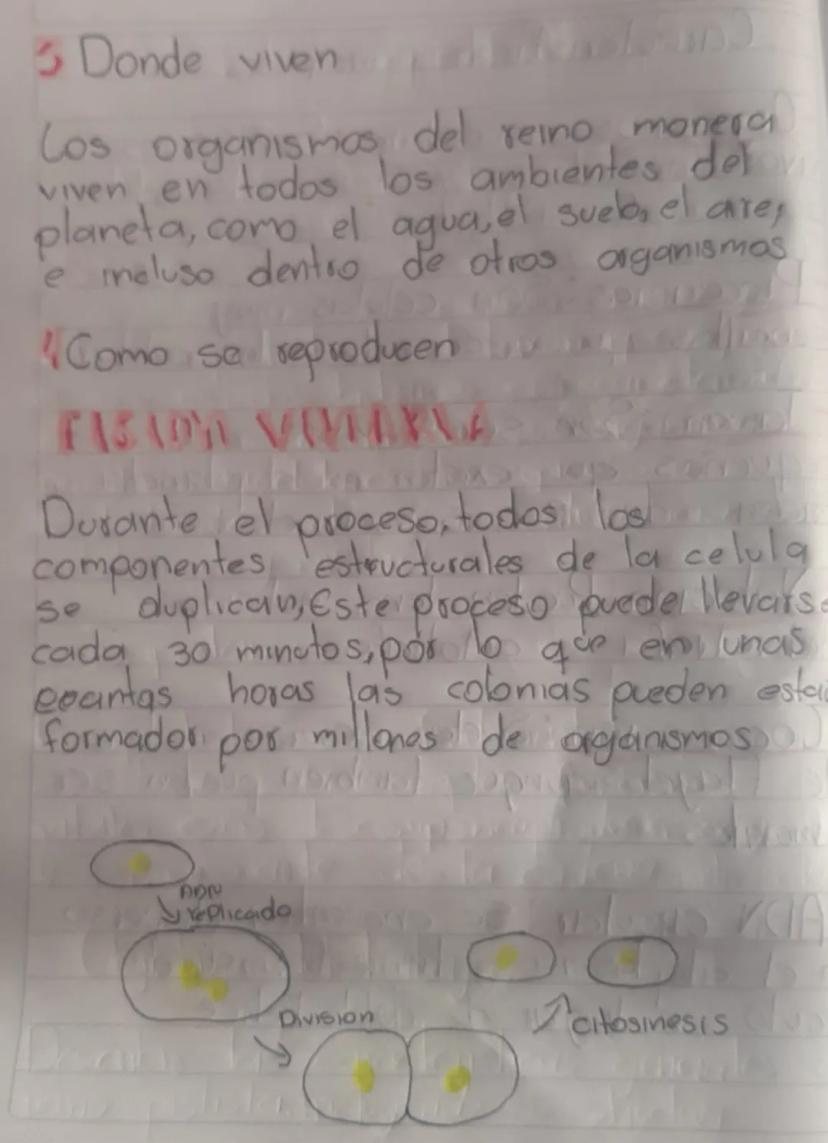 3 Donde viven
Los organismos del reino monera
viven en todos los ambientes del
planeta, como el agua, el suelo, el aire,
e incluso dentro de otros organismos
4 Como se reproducen
FISION VINARIA
Durante el proceso, todos los
componentes estructurales de la celula
se duplican, Este proceso puede llevarse
cada 30 minutos, por lo que en unas
cuantas horas las colonias pueden estar
formador por millones de organismos
ADN
replicado
División
citosinesis